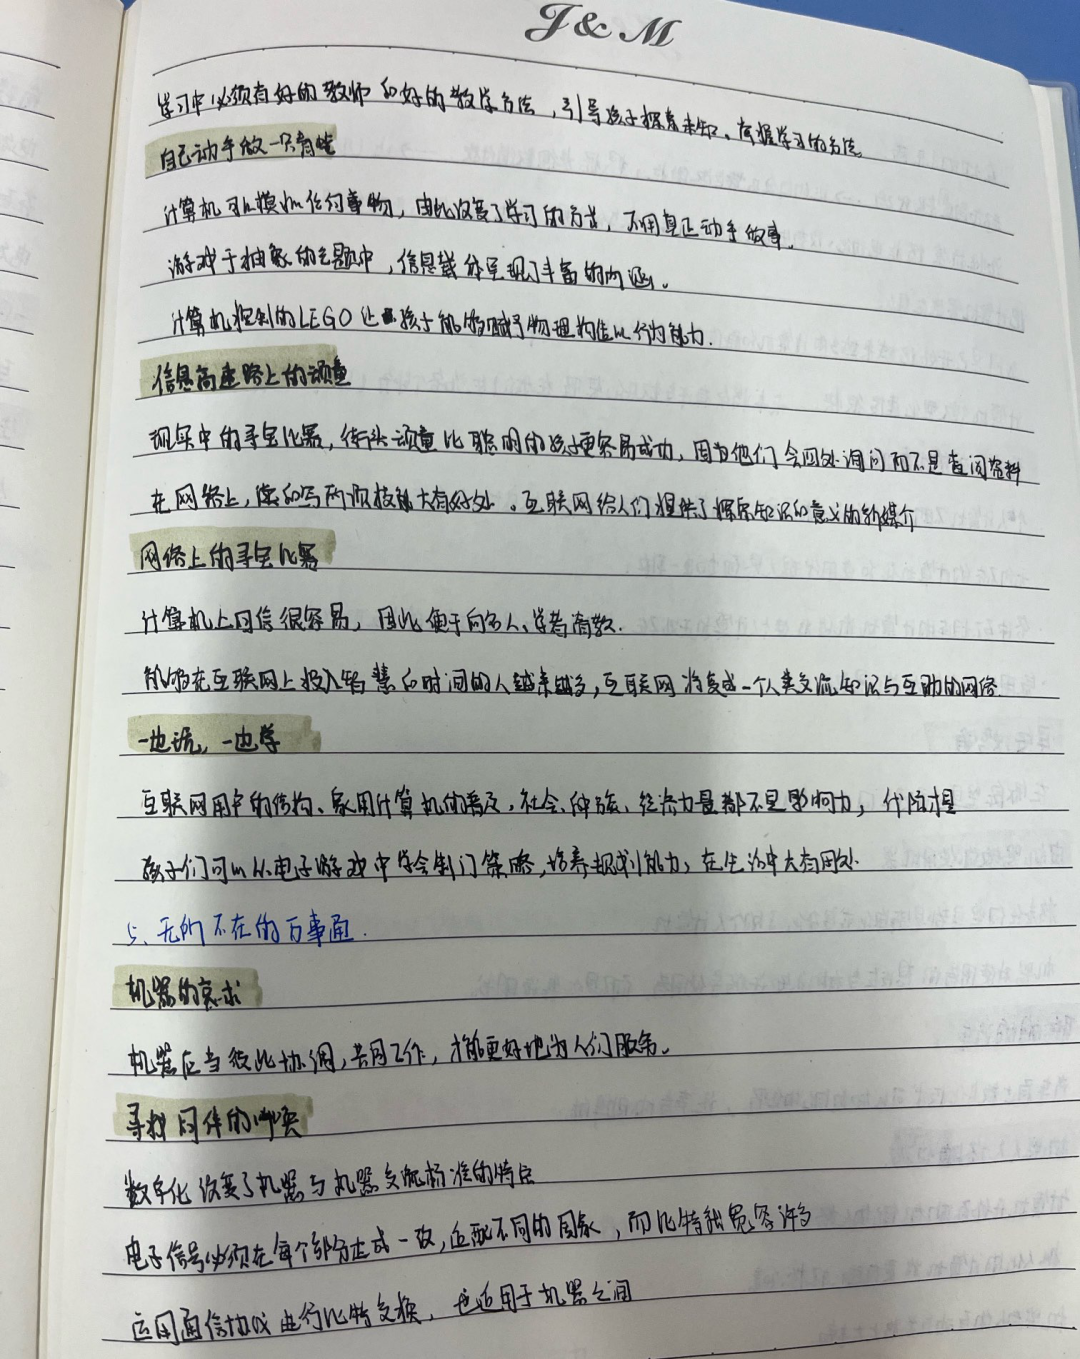 J & M
学习中必须有好的教师和好的教学方法，引导孩子探索未知、掌握学习的方法
自己动手做一只青蛙
计算机可以模拟任何事物，由此改变了学习的方式，不用真正动手做事.
游戏于抽象的主题中，信息载体呈现了丰富的内涵。
计算机控制的LEGO让孩子能够赋予物理构造以行为能力.
信息高速路上的顽童
现实中的寻宝比赛，街头顽童比聪明的孩子更容易成功，因为他们会四处询问而不是查阅资料
在网络上，读和写两项技能大有好处。互联网给人们提供了探索知识和意义的新媒介
网络上的寻宝比赛
计算机上回信很容易，因此便于向名人、学者请教.
能够在互联网上投入智慧和时间的人越来越多，互联网将变成一个人类交流知识与互助的网络.
一边玩，一边学
互联网用户的结构、家用计算机的普及，社会、种族、经济力量都不是影响力，代际才是
孩子们可以从电子游戏中学会制门策略，培养规划能力，在生活中大有用处
5、无所不在的万事通.
机器的哀求
机器应当彼此协调，共同工作，才能更好地为人们服务。
寻找同伴的呼唤
数字化改变了机器与机器交流标准的特色
电子信号必须在每个部分达成一致，适配不同的国家，而比特就宽容许多
运用通信协议进行比特交换，也适用于机器之间